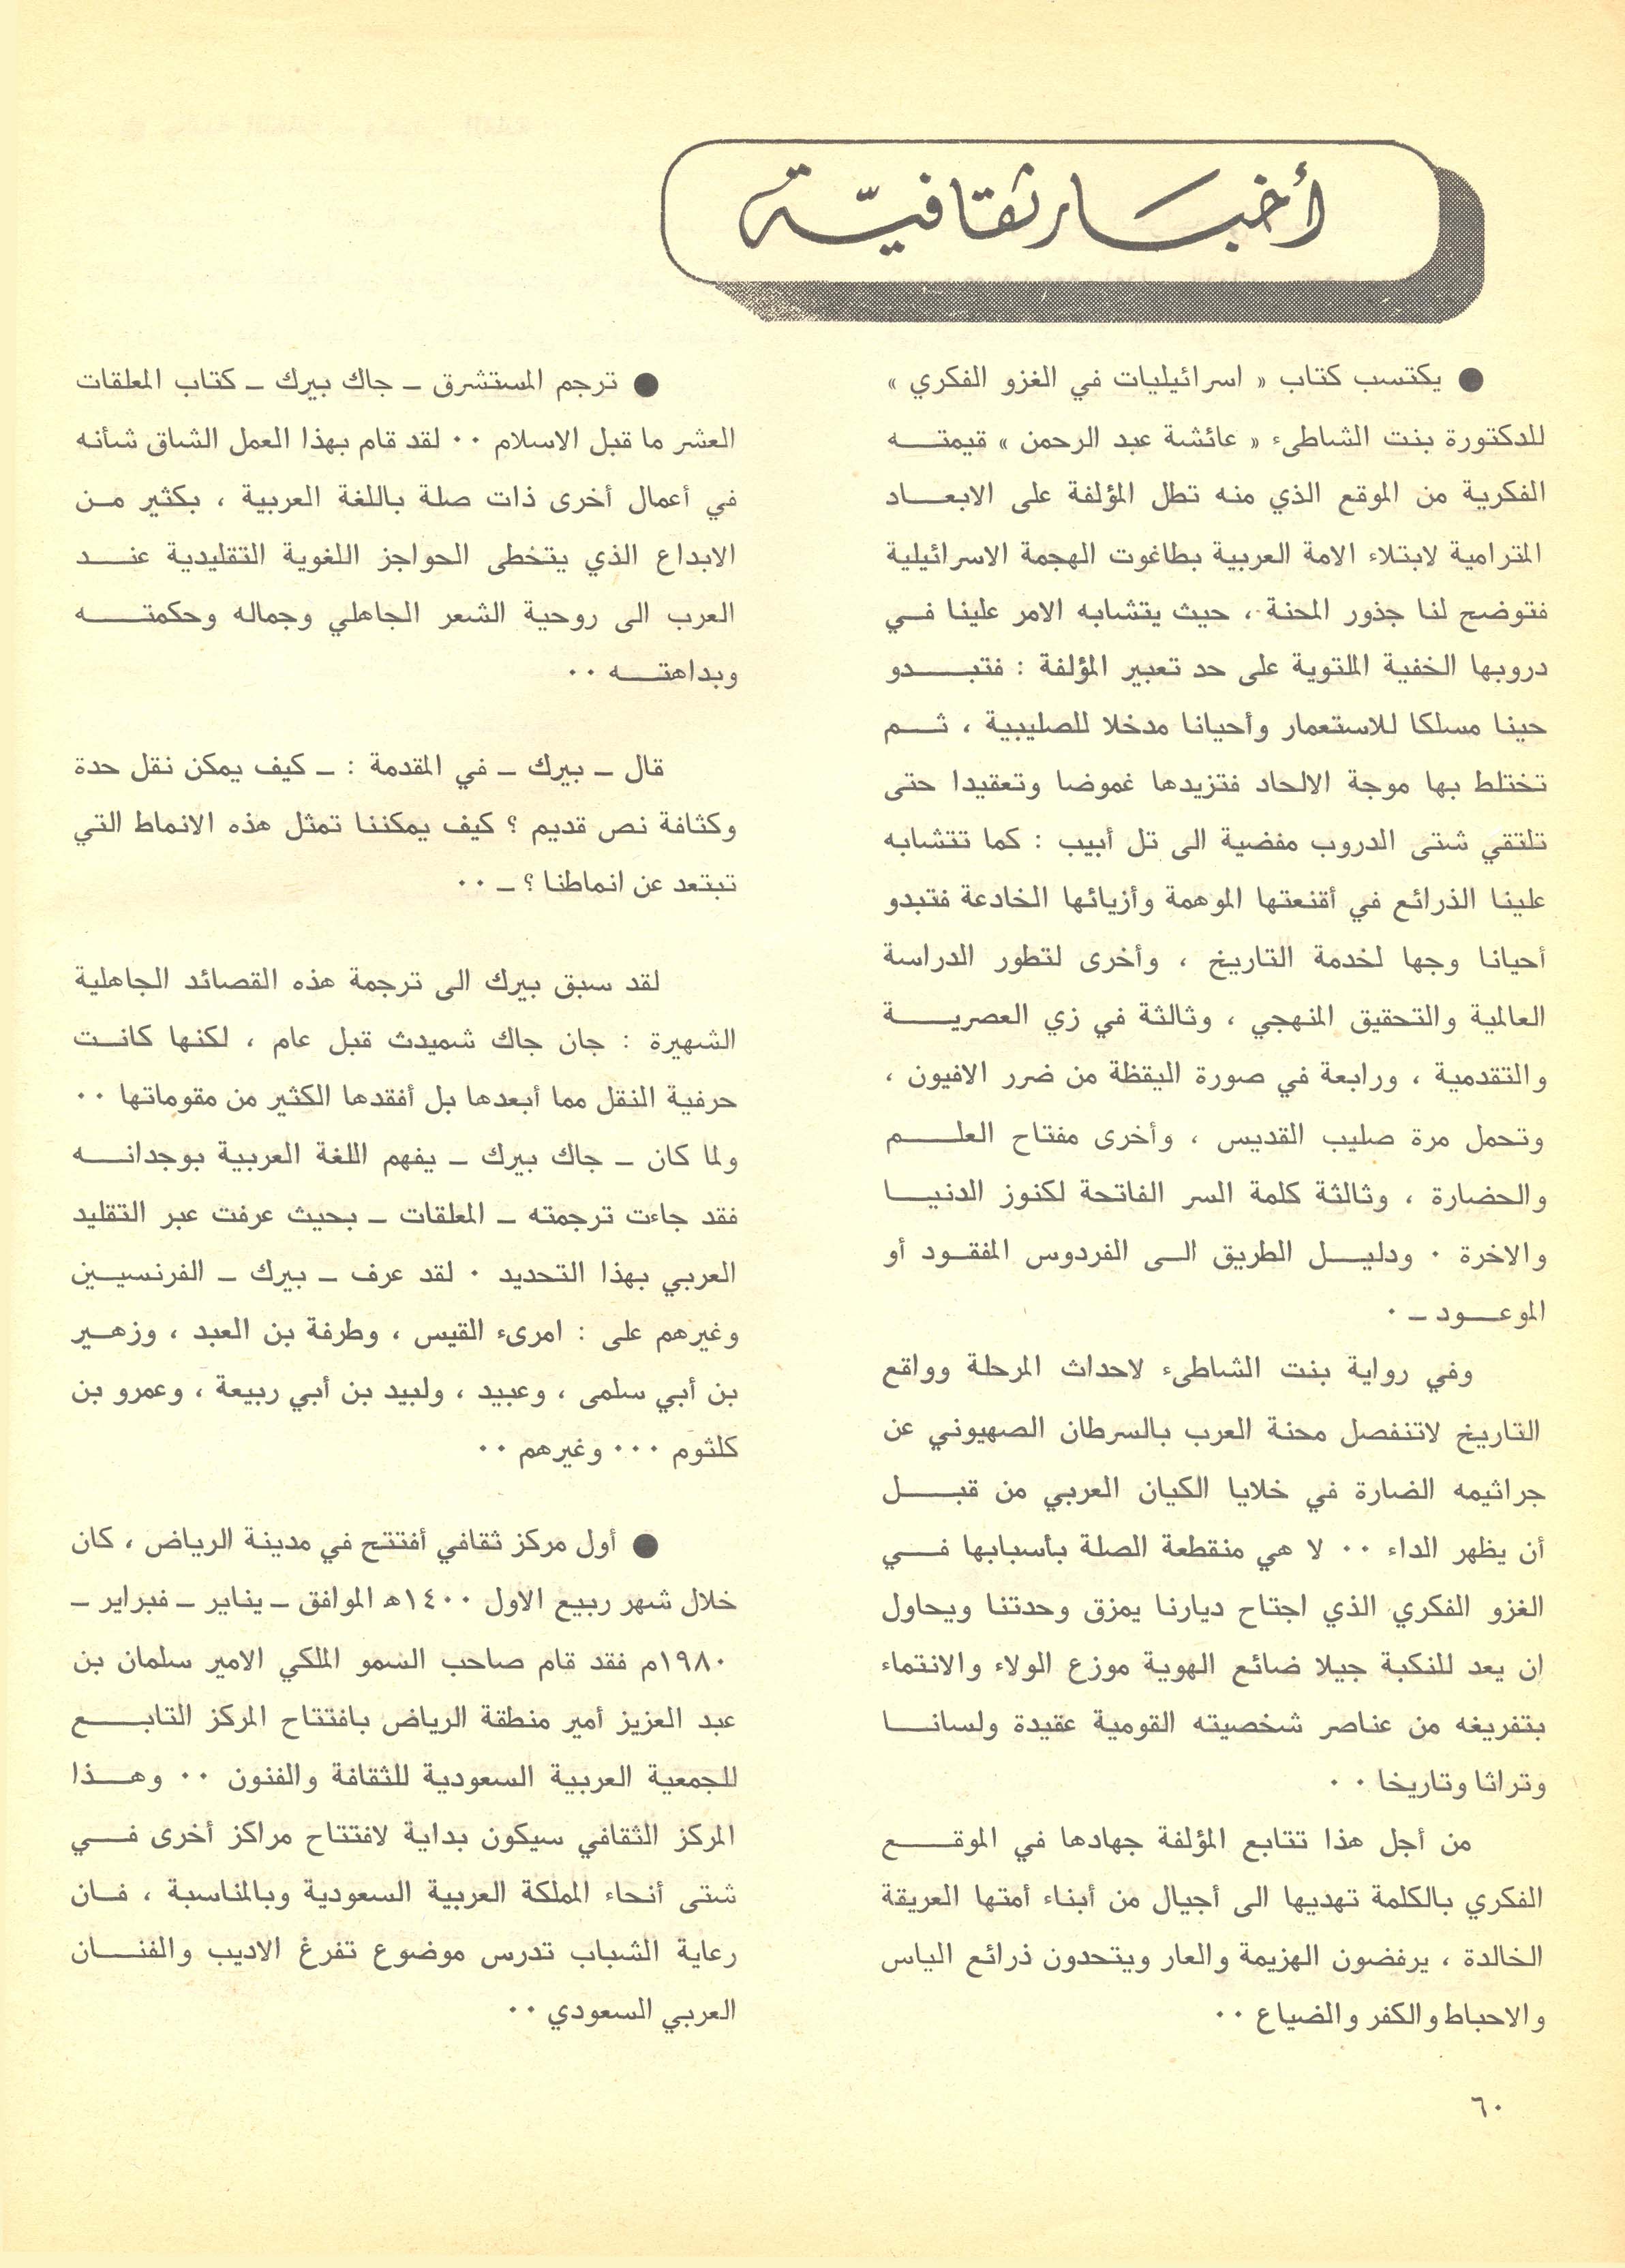 أخبار ثقافيّة
● يكتسب كتاب « اسرائيليات في الغزو الفكري »
للدكتورة بنت الشاطىء « عائشة عبد الرحمن » قيمته
الفكرية من الموقع الذي منه تطل المؤلفة على الابعاد
المترامية لابتلاء الامة العربية بطاغوت الهجمة الاسرائيلية
فتوضح لنا جذور المحنة ، حيث يتشابه الامر علينا في
دروبها الخفية الملتوية على حد تعبير المؤلفة : فتبدو
حينا مسلكا للاستعمار وأحيانا مدخلا للصليبية ، ثم
تختلط بها موجة الالحاد فتزيدها غموضا وتعقيدا حتى
تلتقي شتى الدروب مفضية الى تل أبيب : كما تتشابه
علينا الذرائع في أقنعتها الموهمة وأزيائها الخادعة فتبدو
أحيانا وجها لخدمة التاريخ ، وأخرى لتطور الدراسة
العالمية والتحقيق المنهجي ، وثالثة في زي العصرية
والتقدمية ، ورابعة في صورة اليقظة من ضرر الافيون ،
وتحمل مرة صليب القديس ، وأخرى مفتاح العلم
والحضارة ، وثالثة كلمة السر الفاتحة لكنوز الدنيا
والاخرة ٠ ودليل الطريق الى الفردوس المفقود أو
الموعود ـ ٠
وفي رواية بنت الشاطىء لاحداث المرحلة وواقع
التاريخ لاتنفصل محنة العرب بالسرطان الصهيوني عن
جراثيمه الضارة في خلايا الكيان العربي من قبل
أن يظهر الداء ٠٠ لا هي منقطعة الصلة بأسبابها في
الغزو الفكري الذي اجتاح ديارنا يمزق وحدتنا ويحاول
ان يعد للنكبة جيلا ضائع الهوية موزع الولاء والانتماء
بتفريغه من عناصر شخصيته القومية عقيدة ولسانا
وتراثا وتاريخا ٠٠
من أجل هذا تتابع المؤلفة جهادها في الموقع
الفكري بالكلمة تهديها الى أجيال من أبناء أمتها العريقة
الخالدة ، يرفضون الهزيمة والعار ويتحدون ذرائع الياس
والاحباط والكفر والضياع ٠٠
● ترجم المستشرق ـ جاك بيرك ـ كتاب المعلقات
العشر ما قبل الاسلام ٠٠ لقد قام بهذا العمل الشاق شأنه
في أعمال أخرى ذات صلة باللغة العربية ، بكثير من
الابداع الذي يتخطى الحواجز اللغوية التقليدية عند
العرب الى روحية الشعر الجاهلي وجماله وحكمته
وبداهته ٠٠
قال ـ بيرك ـ في المقدمة : ـ كيف يمكن نقل حدة
وكثافة نص قديم ؟ كيف يمكننا تمثل هذه الانماط التي
تبتعد عن انماطنا ؟ ـ ٠٠
لقد سبق بيرك الى ترجمة هذه القصائد الجاهلية
الشهيرة : جان جاك شميدث قبل عام ، لكنها كانت
حرفية النقل مما أبعدها بل أفقدها الكثير من مقوماتها ٠٠
ولما كان ـ جاك بيرك ـ يفهم اللغة العربية بوجدانه
فقد جاءت ترجمته ـ المعلقات ـ بحيث عرفت عبر التقليد
العربي بهذا التحديد ٠ لقد عرف ـ بيرك ـ الفرنسيين
وغيرهم على : امرىء القيس ، وطرفة بن العبد ، وزهير
بن أبي سلمى ، وعبيد ، ولبيد بن أبي ربيعة ، وعمرو بن
كلثوم ٠٠٠ وغيرهم ٠٠
● أول مركز ثقافي أفتتح في مدينة الرياض ، كان
خلال شهر ربيع الاول ١٤٠٠هـ الموافق ـ يناير ـ فبراير ـ
١٩٨٠م فقد قام صاحب السمو الملكي الامير سلمان بن
عبد العزيز أمير منطقة الرياض بافتتاح المركز التابع
للجمعية العربية السعودية للثقافة والفنون ٠٠ وهذا
المركز الثقافي سيكون بداية لافتتاح مراكز أخرى في
شتى أنحاء المملكة العربية السعودية وبالمناسبة ، فان
رعاية الشباب تدرس موضوع تفرغ الاديب والفنان
العربي السعودي ٠٠
٦٠